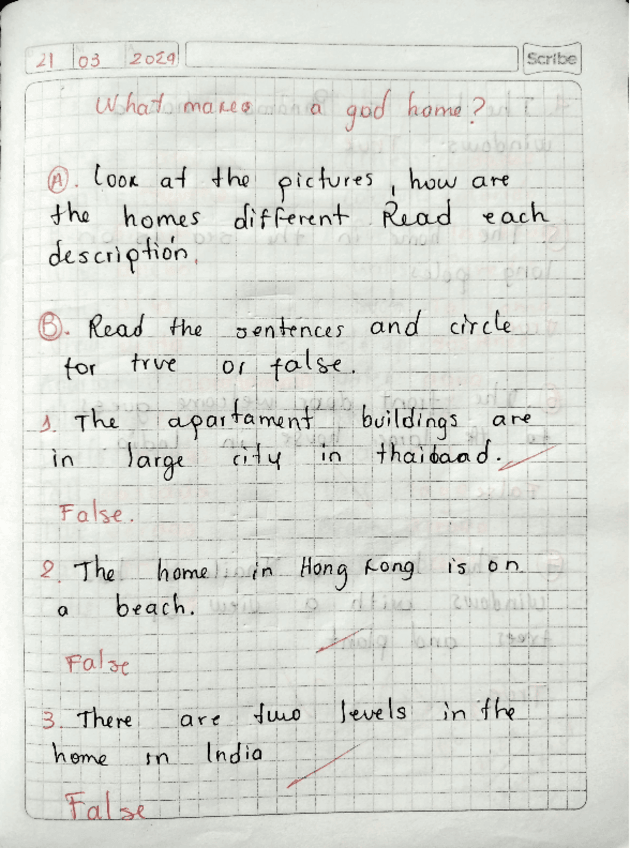 21 03 2029 Scribe
What makes a god home?
A. Look at the pictures, how are
the homes different Read each
description.
B. Read the sentences and circle
for true or false.
1 The apartament buildings are
in large city in thaibaad.
False.
2. The home in Hong Kong is on
a beach.
False
3. There are two levels in the
home in India
False